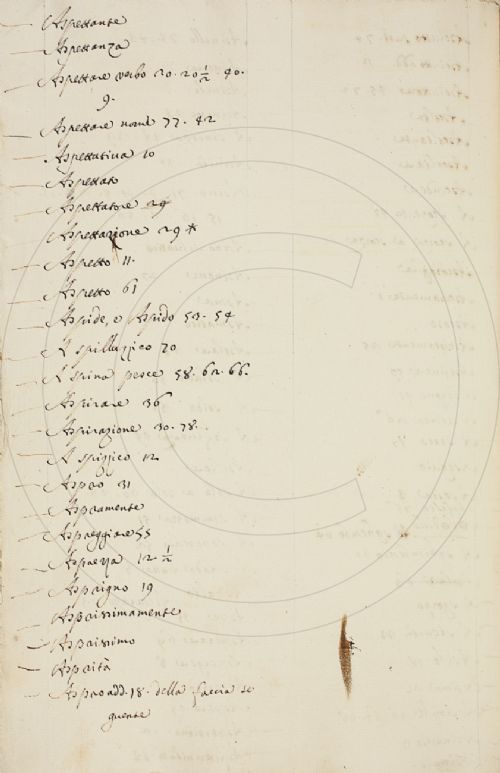 Aspettante
Aspettanza
Aspettare verbo 20. 20½. 40.
9.
Aspettare nome 77. 42
Aspettativa 10
Aspettato
Aspettatore 29
Aspettazione 29 *
Aspetto 11.
Aspetto 61
Aspide, e Aspido 53. 54
A spilluzzico 70
A spina pesce 58. 62. 66.
Aspirare 36
Aspirazione 30. 78.
A spizzico 12
Aspro 31
Aspramente
Aspreggiare 55
Asprezza 12 ½
Asprigno 19
Asprissimamente
Asprissimo
Asprità
Aspro add. 18. della faccia se
guente